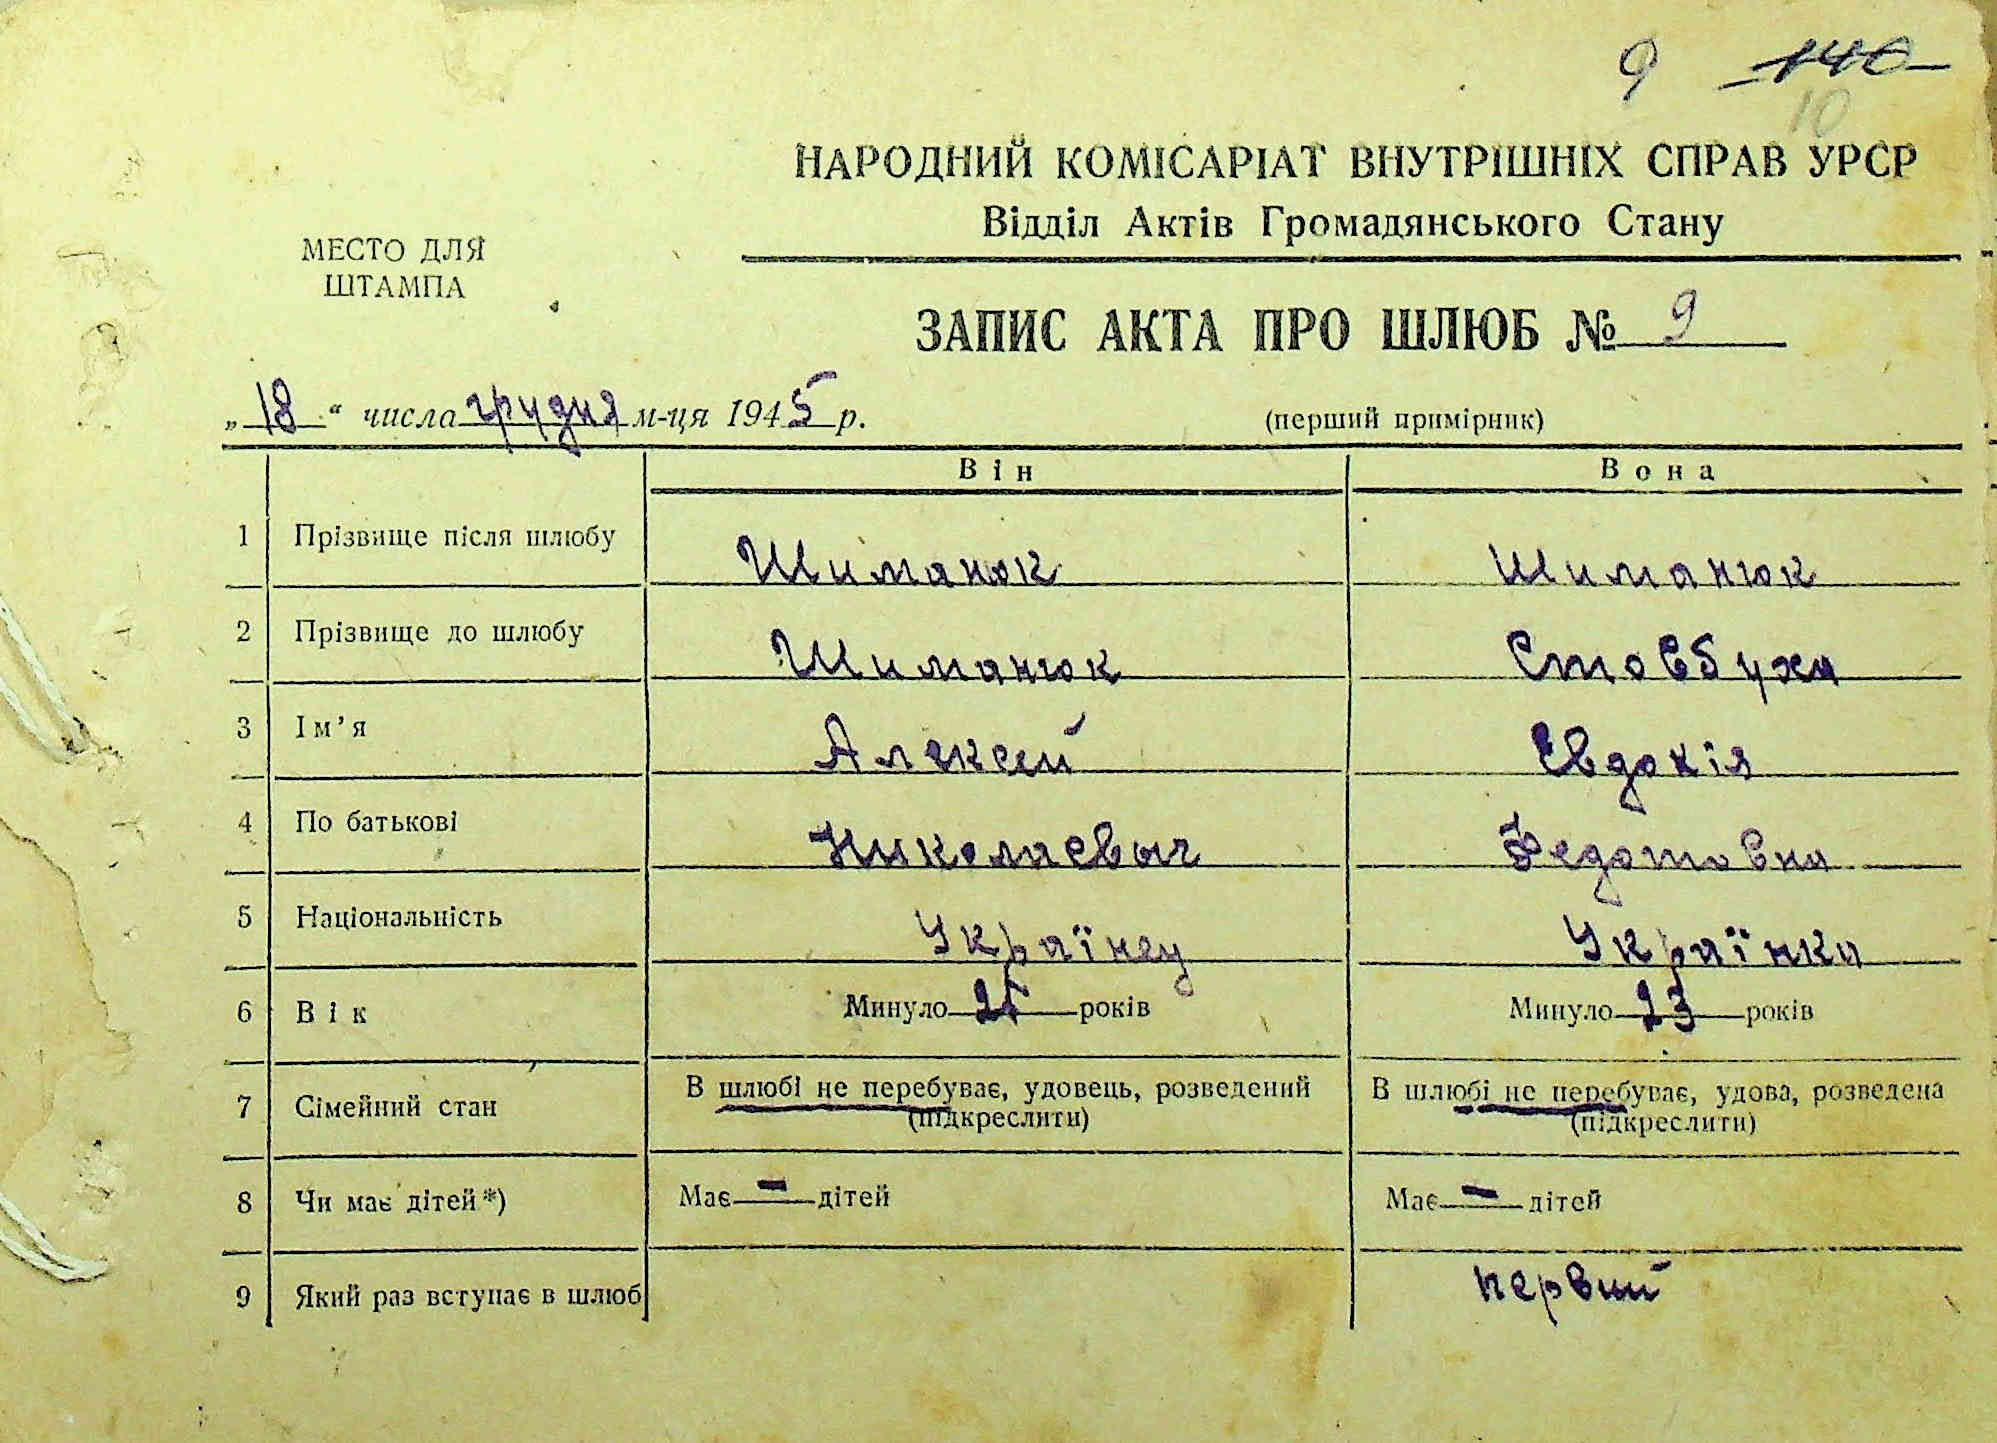 9 140
10
НАРОДНИЙ КОМІСАРІАТ ВНУТРІШНІХ СПРАВ УРСР
Відділ Актів Громадянського Стану
МЕСТО ДЛЯ
ШТАМПА
ЗАПИС АКТА ПРО ШЛЮБ № 9
„18“ числа грудня м-ця 1945 р.
(перший примірник)
Він Вона
1 Прізвище після шлюбу Шиманюк Шиманюк
2 Прізвище до шлюбу Шиманюк Стовбуха
3 Ім’я Алексей Євдокія
4 По батькові Николаевыч Федотовна
5 Національність Українец Українка
6 Вік Минуло років Минуло 23 років
7 Сімейний стан В шлюбі не перебуває, удовець, розведений В шлюбі не перебуває, удова, розведена
(підкреслити) (підкреслити)
8 Чи має дітей*) Має — дітей Має — дітей
9 Який раз вступає в шлюб первий